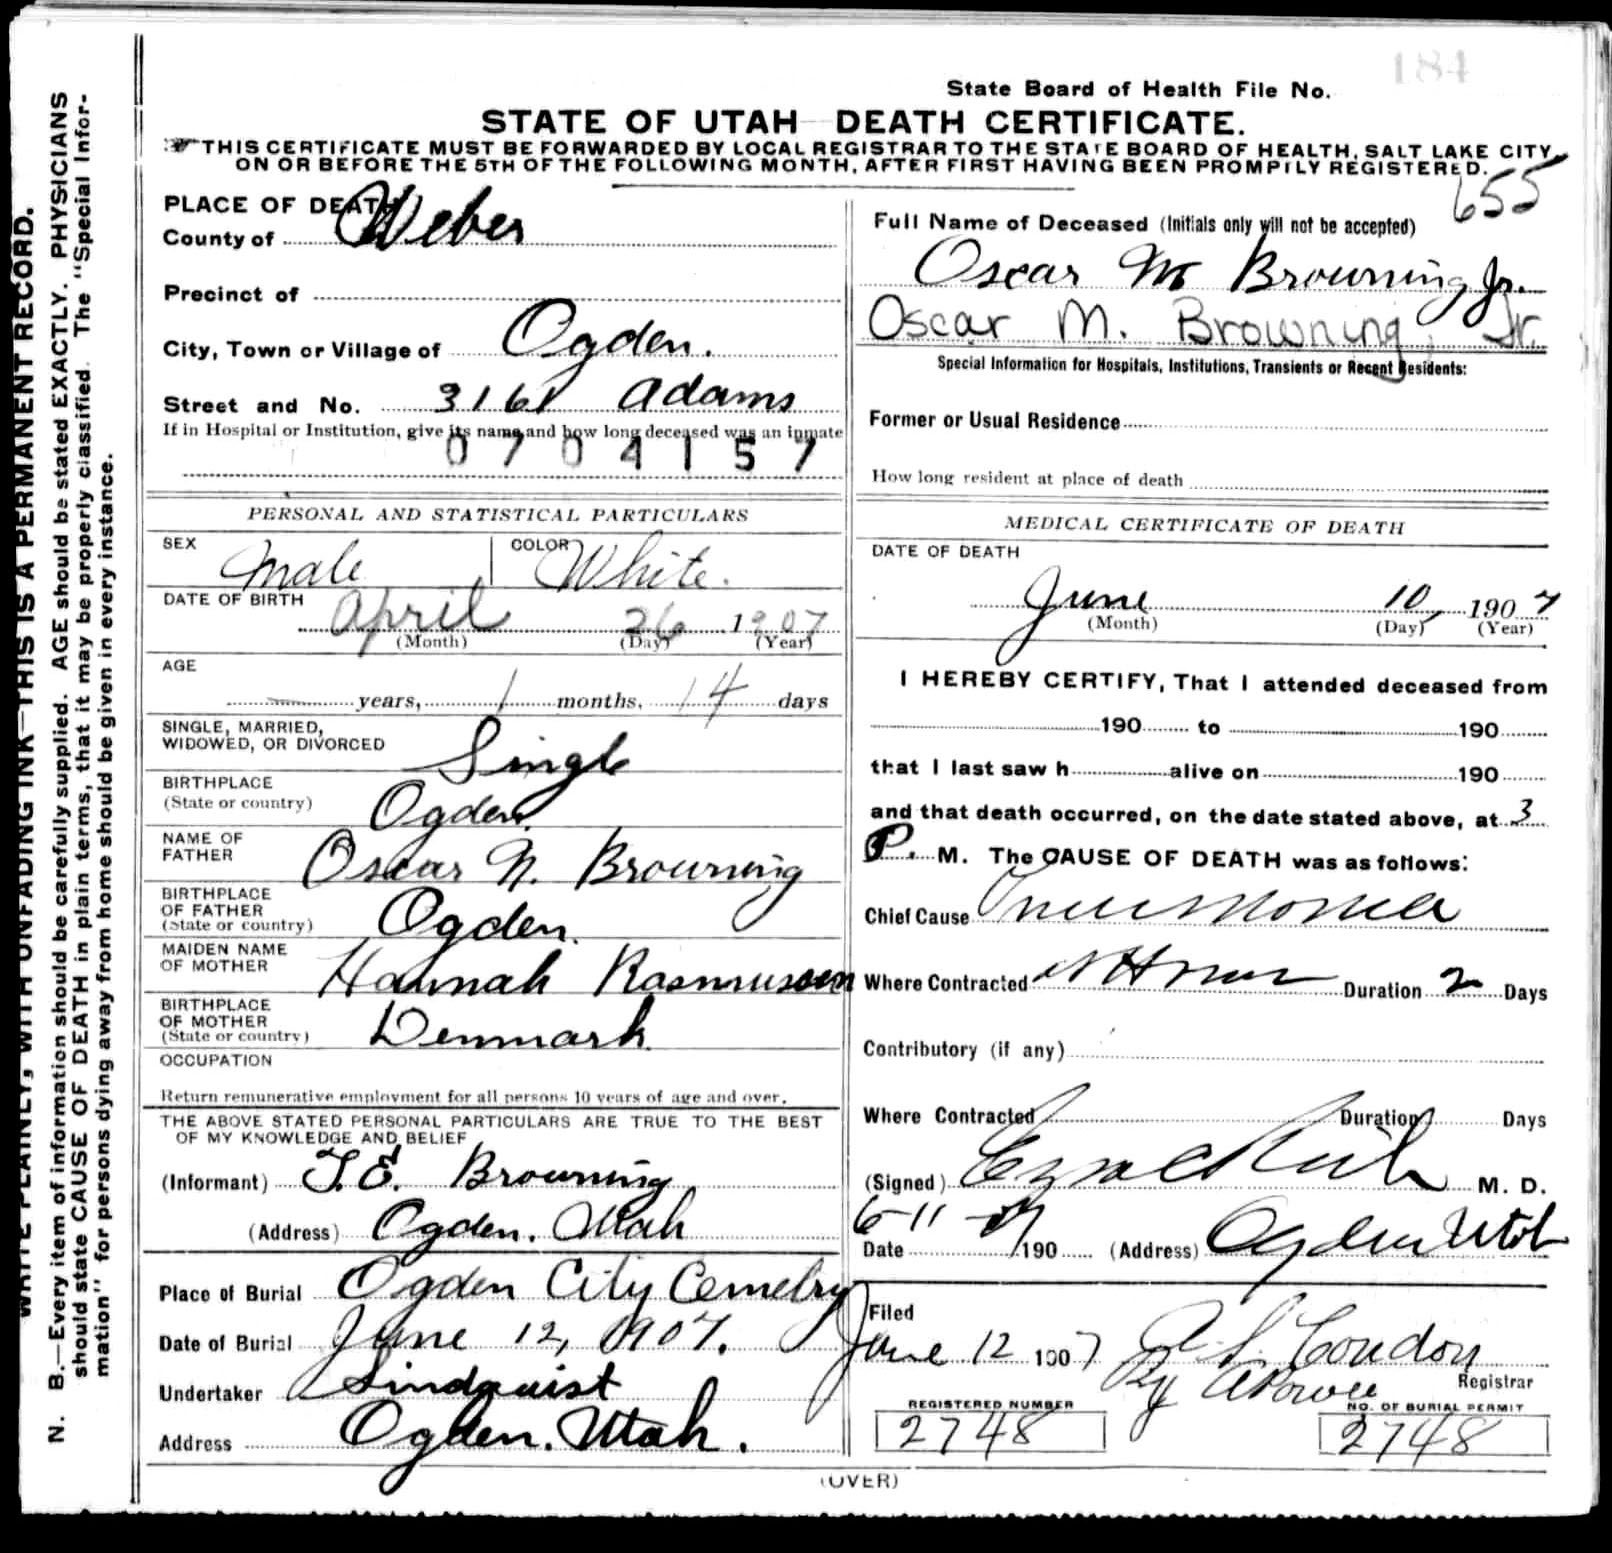 184
State Board of Health File No.
STATE OF UTAH DEATH CERTIFICATE.
THIS CERTIFICATE MUST BE FORWARDED BY LOCAL REGISTRAR TO THE STATE BOARD OF HEALTH, SALT LAKE CITY,
ON OR BEFORE THE 5TH OF THE FOLLOWING MONTH, AFTER FIRST HAVING BEEN PROMPTLY REGISTERED.
655
WRITE PLAINLY, WITH UNFADING INK—THIS IS A PERMANENT RECORD.
N. B.—Every item of information should be carefully supplied. AGE should be stated EXACTLY. PHYSICIANS
should state CAUSE OF DEATH in plain terms, that it may be properly classified. The "Special Infor-
mation" for persons dying away from home should be given in every instance.
PLACE OF DEATH
County of Weber
Precinct of
City, Town or Village of Ogden.
Street and No. 3161 Adams
If in Hospital or Institution, give its name and how long deceased was an inmate
0704157
PERSONAL AND STATISTICAL PARTICULARS
SEX Male COLOR White.
DATE OF BIRTH
April 26 1907
(Month) (Day) (Year)
AGE
years, 1 months, 14 days
SINGLE, MARRIED,
WIDOWED, OR DIVORCED Single
BIRTHPLACE
(State or country) Ogden.
NAME OF
FATHER Oscar N. Browning
BIRTHPLACE
OF FATHER
(State or country) Ogden.
MAIDEN NAME
OF MOTHER Hannah Rasmussen
BIRTHPLACE
OF MOTHER
(State or country) Denmark
OCCUPATION
Return remunerative employment for all persons 10 years of age and over.
THE ABOVE STATED PERSONAL PARTICULARS ARE TRUE TO THE BEST
OF MY KNOWLEDGE AND BELIEF
(Informant) T. E. Browning
(Address) Ogden. Utah
Place of Burial Ogden City Cemetry
Date of Burial June 12, 1907.
Undertaker Lindquist
Address Ogden. Utah.
Full Name of Deceased (Initials only will not be accepted)
Oscar M Browning Jr.
Oscar M. Browning, Jr.
Special Information for Hospitals, Institutions, Transients or Recent Residents:
Former or Usual Residence
How long resident at place of death
MEDICAL CERTIFICATE OF DEATH
DATE OF DEATH
June 10, 1907
(Month) (Day) (Year)
I HEREBY CERTIFY, That I attended deceased from
190 to 190
that I last saw h alive on 190
and that death occurred, on the date stated above, at 3
P. M. The CAUSE OF DEATH was as follows:
Chief Cause Pneumonia
Where Contracted Duration 2 Days
Contributory (if any)
Where Contracted Duration Days
(Signed) Rich M. D.
6-11-07
Date 190 (Address) Ogden Utah
Filed
June 12 1907 Condon
By Registrar
REGISTERED NUMBER
2748
NO. OF BURIAL PERMIT
2748
(OVER)